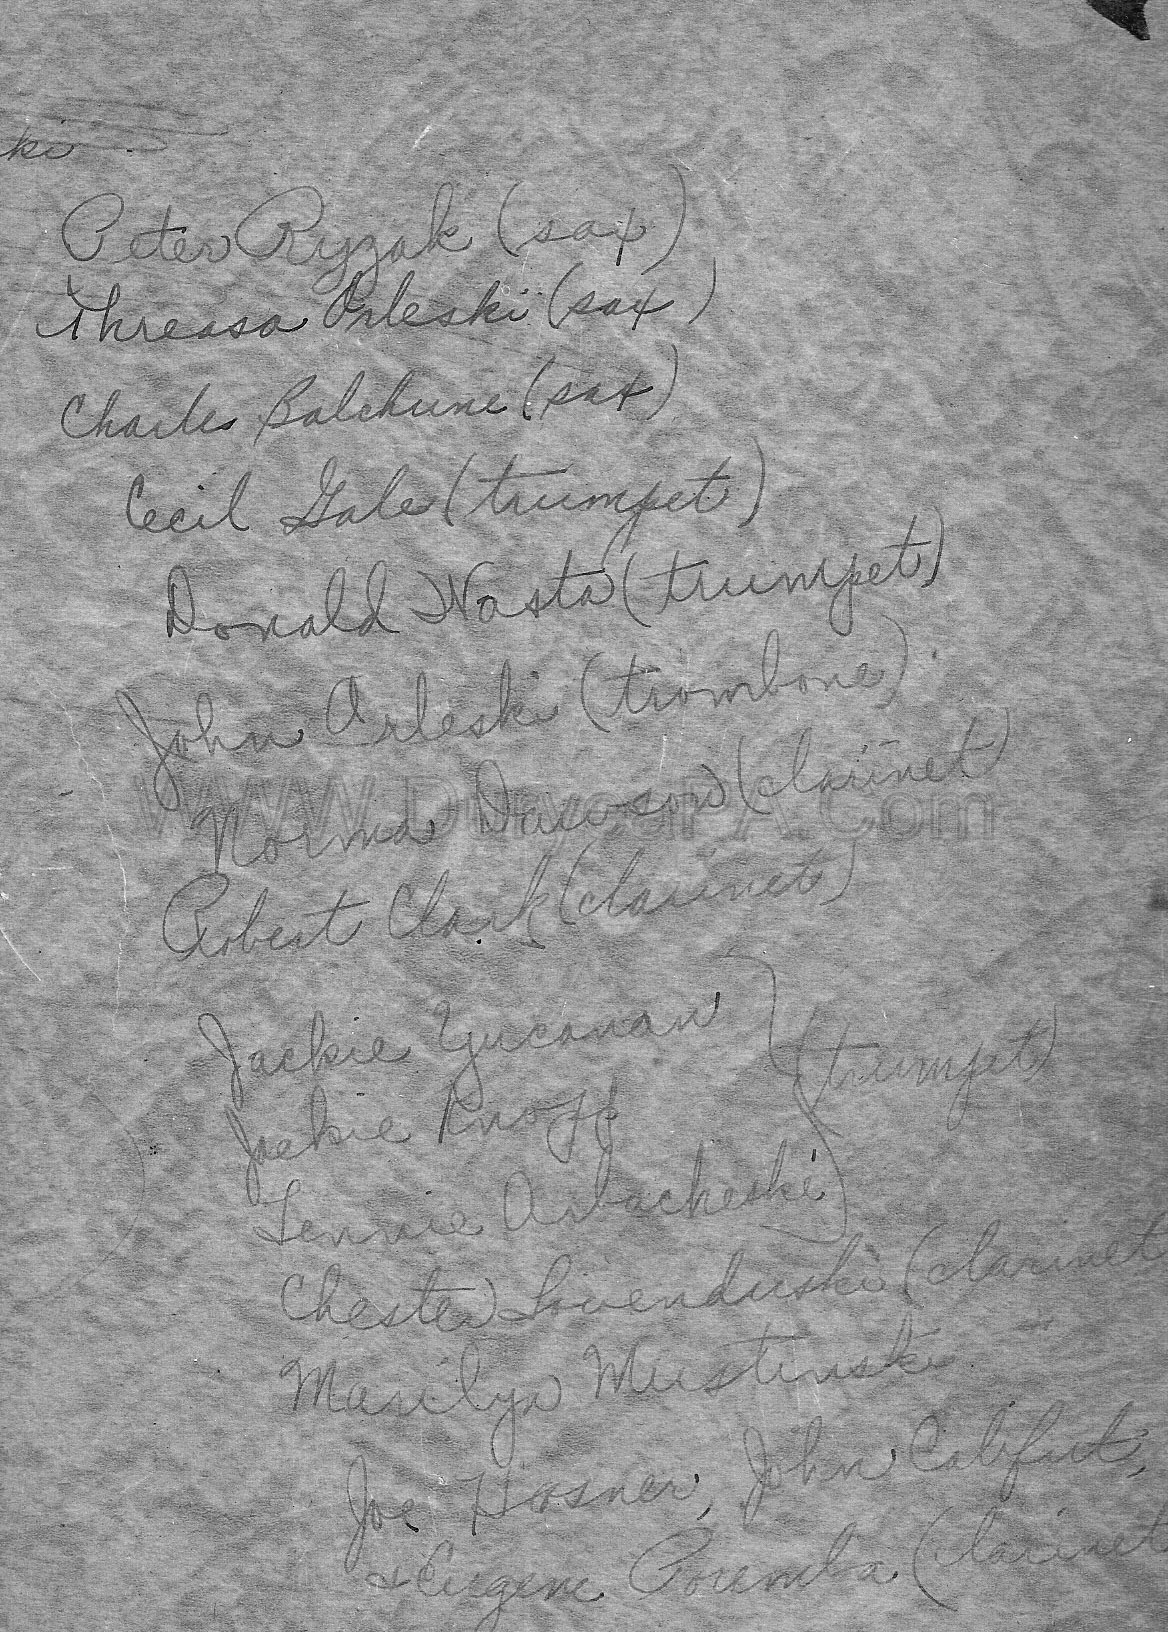 ki
Peter Ryzak (sax)
Threasa Orleski (sax)
Charles Balchune (sax)
Cecil Gale (trumpet)
Donald Nasta (trumpet)
John Orleski (trombone)
www.DuryeaPA.com
Norma Dawson (clarinet)
Robert Clark (clarinet)
Jackie Yuconan
(trumpet)
Jackie Knoff
Lennie Arbacheski
Chester Lovenduski (clarinet
Marilyn
Joe Hosner, John
+ Eugene Poremba (clarinet